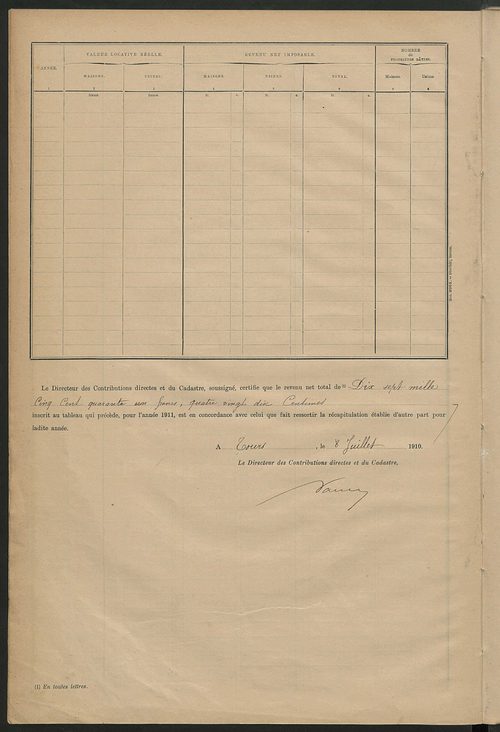 ANNÉE.
VALEUR LOCATIVE RÉELLE.
REVENU NET IMPOSABLE.
NOMBRE
de
PROPRIÉTÉS BÂTIES.
MAISONS.
USINES.
MAISONS.
USINES.
TOTAL.
Maisons.
Usines.
1
2
3
4
5
6
7
8
francs.
francs.
fr.
c.
fr.
c.
fr.
c.
Le Directeur des Contributions directes et du Cadastre, soussigné, certifie que le revenu net total de (1) Dix sept mille
Cinq Cent quarante un francs, quatre vingt dix Centimes
inscrit au tableau qui précède, pour l'année 1911, est en concordance avec celui que fait ressortir la récapitulation établie d'autre part pour
ladite année.
A Tours, le 8 Juillet 1910.
Le Directeur des Contributions directes et du Cadastre,
(1) En toutes lettres.